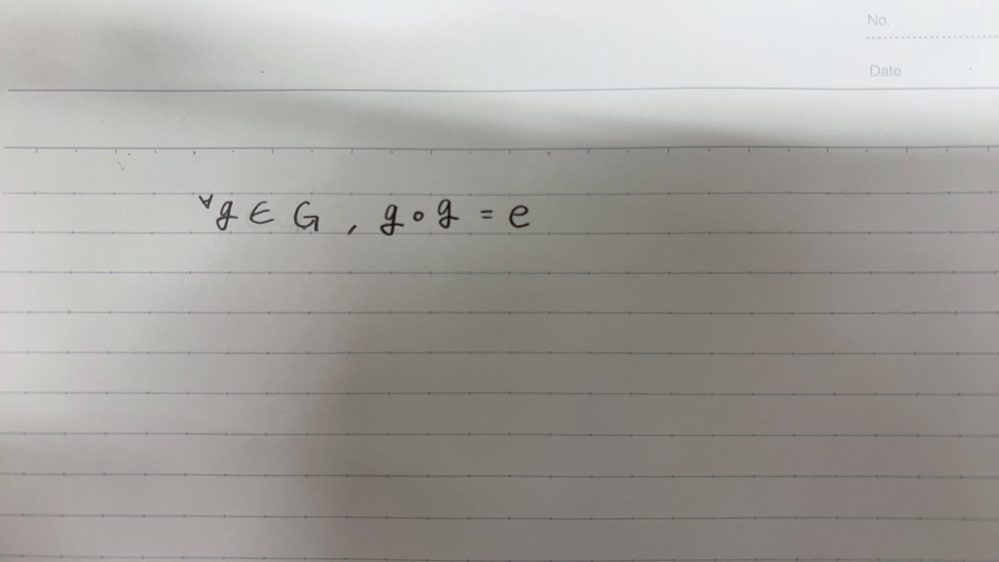 No.
Date
∀g ∈ G , g∘g = e